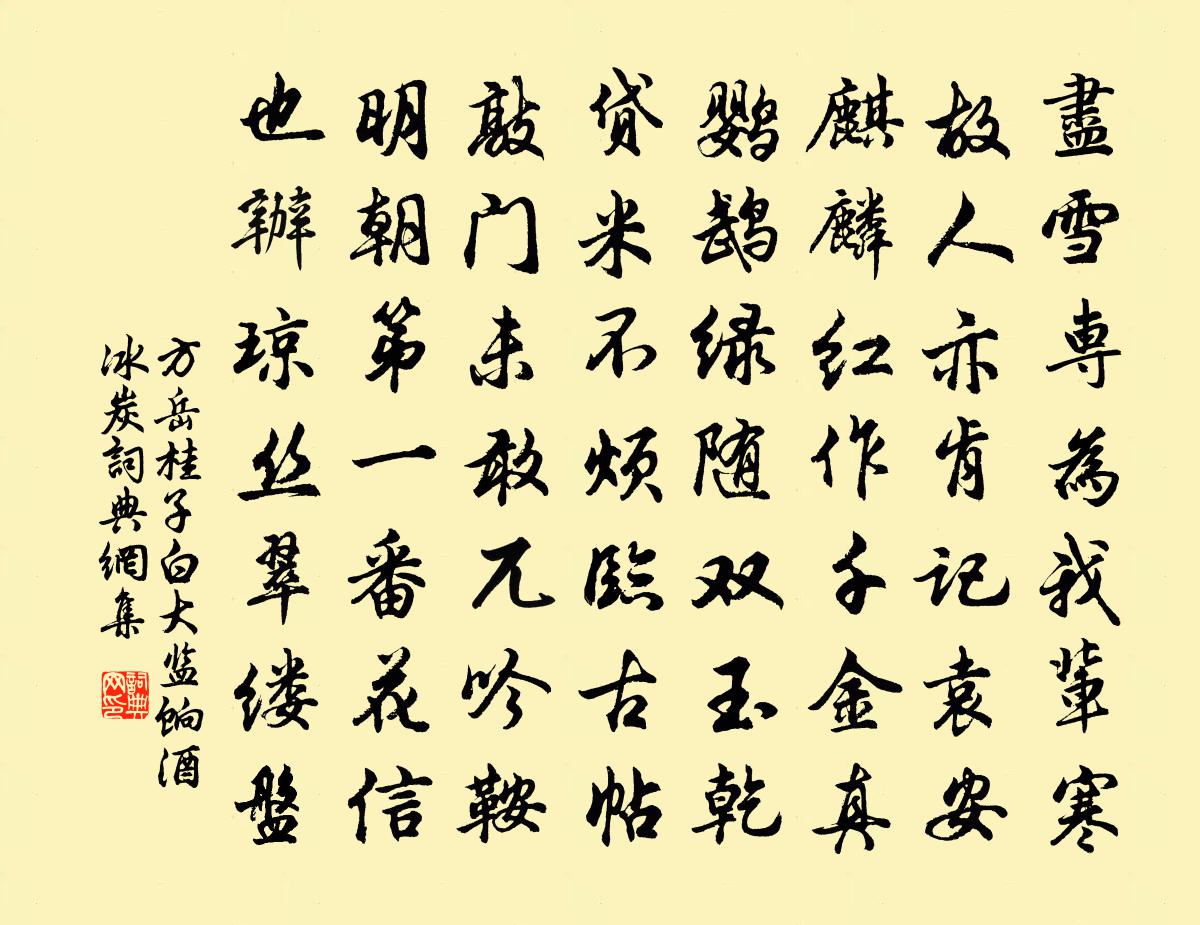 盡雪専為我輩寒
故人亦肯記袁安
麒麟红作千金真
鹦鹉绿随双玉乾
贷米不烦臨古帖
敲门未敢兀吟鞍
明朝第一番花信
也辦琼丝翠缕盤
方岳桂子白大监饷酒
冰炭詞典網集
詞典网印